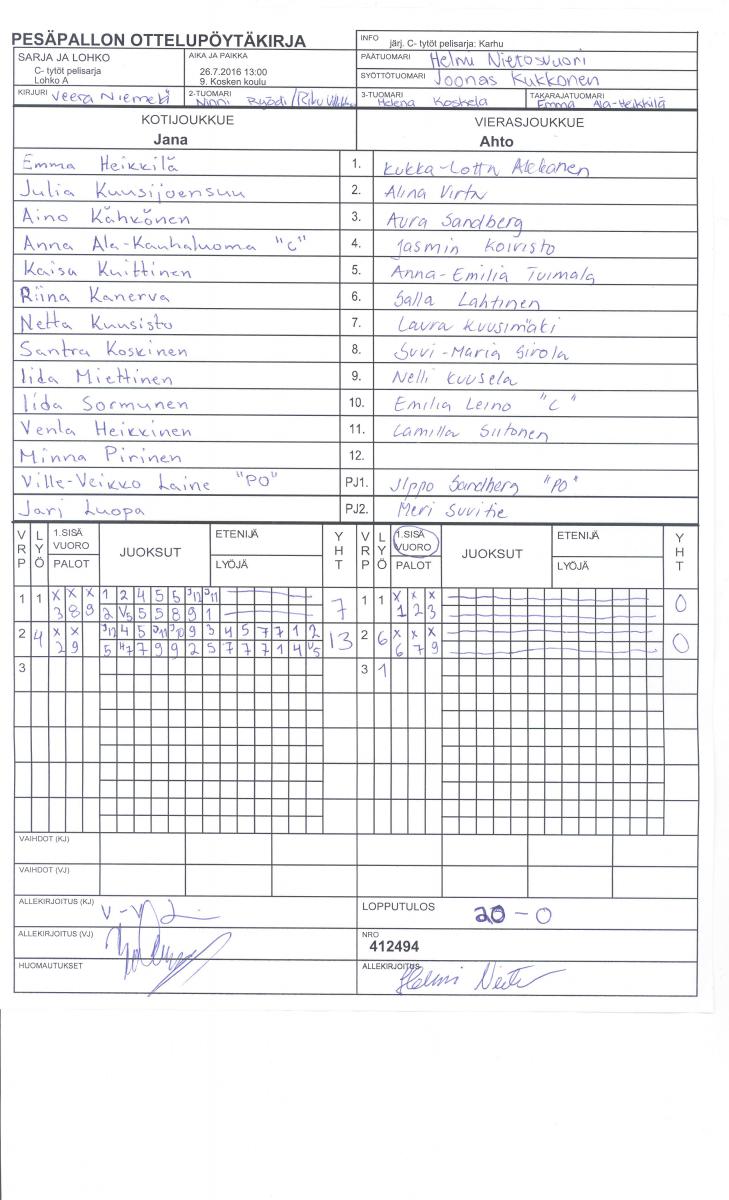 PESÄPALLON OTTELUPÖYTÄKIRJA
INFO järj. C- tytöt pelisarja: Karhu
SARJA JA LOHKO
C- tytöt pelisarja
Lohko A
AIKA JA PAIKKA
26.7.2016 13:00
9. Kosken koulu
PÄÄTUOMARI Helmi Nietosvuori
SYÖTTÖTUOMARI Joonas Kukkonen
KIRJURI Veera Niemelä
2-TUOMARI
3-TUOMARI Helena Koskela
TAKARAJATUOMARI Emma Ala-Heikkilä
KOTIJOUKKUE
Jana
VIERASJOUKKUE
Ahto
Emma Heikkilä 1. Kukka-Lotta
Julia Kuusijoensuu 2. Alina Virta
Aino Kähkönen 3. Aura Sandberg
Anna Ala-Kauhaluoma "C" 4. Jasmin Koivisto
Kaisa Kuittinen 5. Anna-Emilia Tuimala
Riina Kanerva 6. Salla Lahtinen
Netta Kuusisto 7. Laura Kuusimäki
Santra Koskinen 8. Suvi-Maria Sirola
Iida Miettinen 9. Nelli Kuusela
Iida Sormunen 10. Emilia Leino "C"
Venla Heikkinen 11. Camilla Siitonen
Minna Pirinen 12.
Ville-Veikko Laine "PO" PJ1. Ilppo Sandberg "PO"
Jari Luopa PJ2. Meri Suvitie
VRP LYÖ 1.SISÄ VUORO PALOT JUOKSUT ETENIJÄ LYÖJÄ YHT VRP LYÖ 1.SISÄ VUORO PALOT JUOKSUT ETENIJÄ LYÖJÄ YHT
1 1 x x x 1 2 4 5 5 J12 J11 7 1 1 x x x 0
3 8 9 2 V5 5 5 8 9 1 1 2 3
2 4 x x J12 4 5 J11 J10 9 3 4 5 7 7 1 2 13 2 6 x x x 0
2 9 5 H7 7 9 9 2 5 7 7 7 1 4 V5 6 7 9
3 3 1
VAIHDOT (KJ)
VAIHDOT (VJ)
ALLEKIRJOITUS (KJ)
LOPPUTULOS 20 - 0
ALLEKIRJOITUS (VJ)
NRO
412494
HUOMAUTUKSET
ALLEKIRJOITUS Helmi